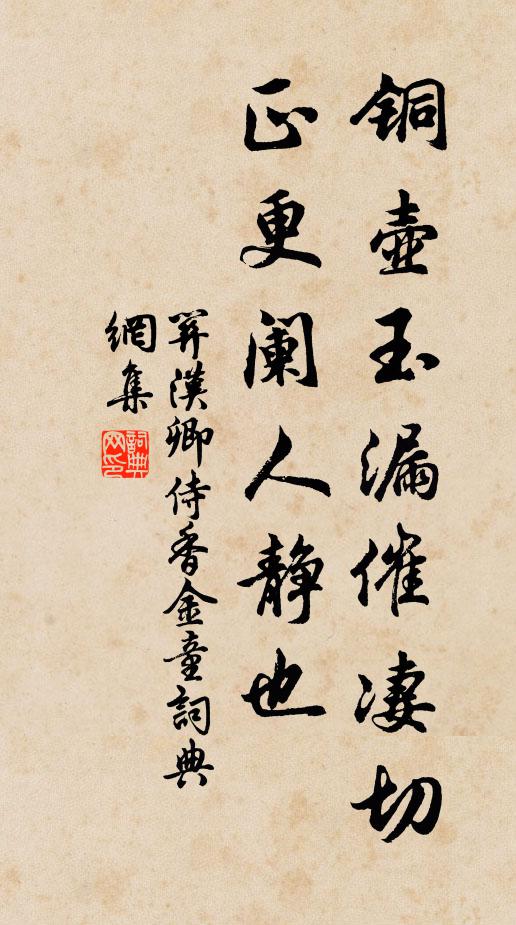 铜壶玉漏催凄切
正更阑人静也
関漢卿侍香金童詞典
網集
詞典
网印